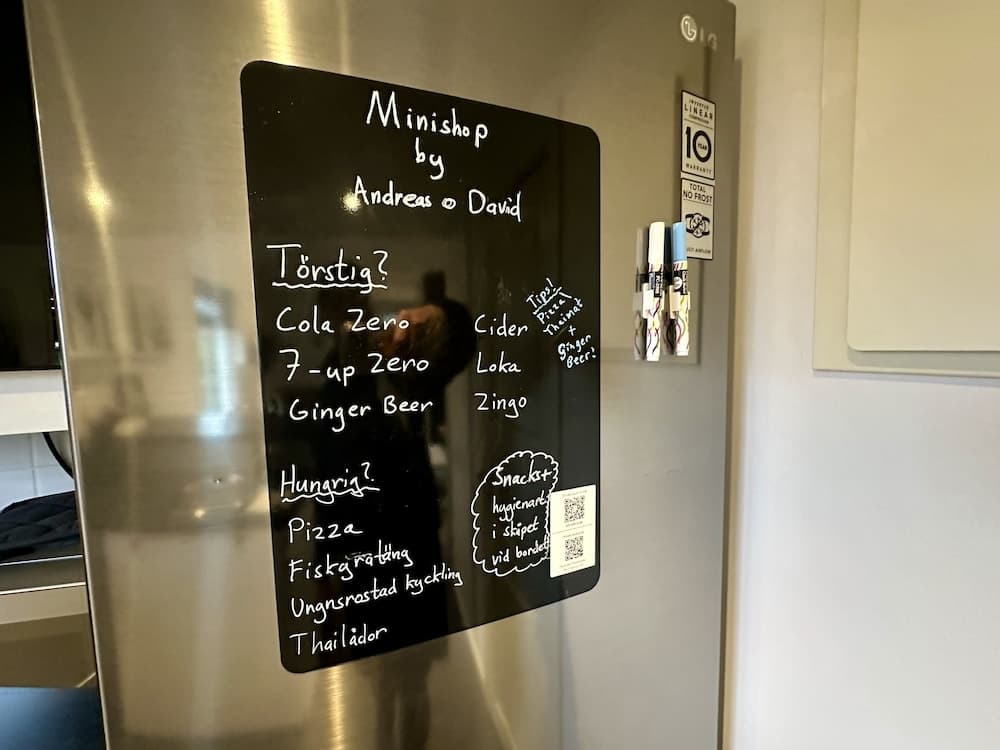 Minishop
by
Andreas & David
Törstig?
Cola Zero
7-up Zero
Ginger Beer
Cider
Loka
Zingo
Tips!
Pizza/
Thaimat
+
Ginger
Beer!
Hungrig?
Pizza
Fiskgratäng
Ungnsrostad kyckling
Thailådor
Snacks+
hygienart.
i skåpet
vid bordet
LG
INVERTER
LINEAR
COMPRESSOR
10 YEAR
WARRANTY
TOTAL
NO FROST